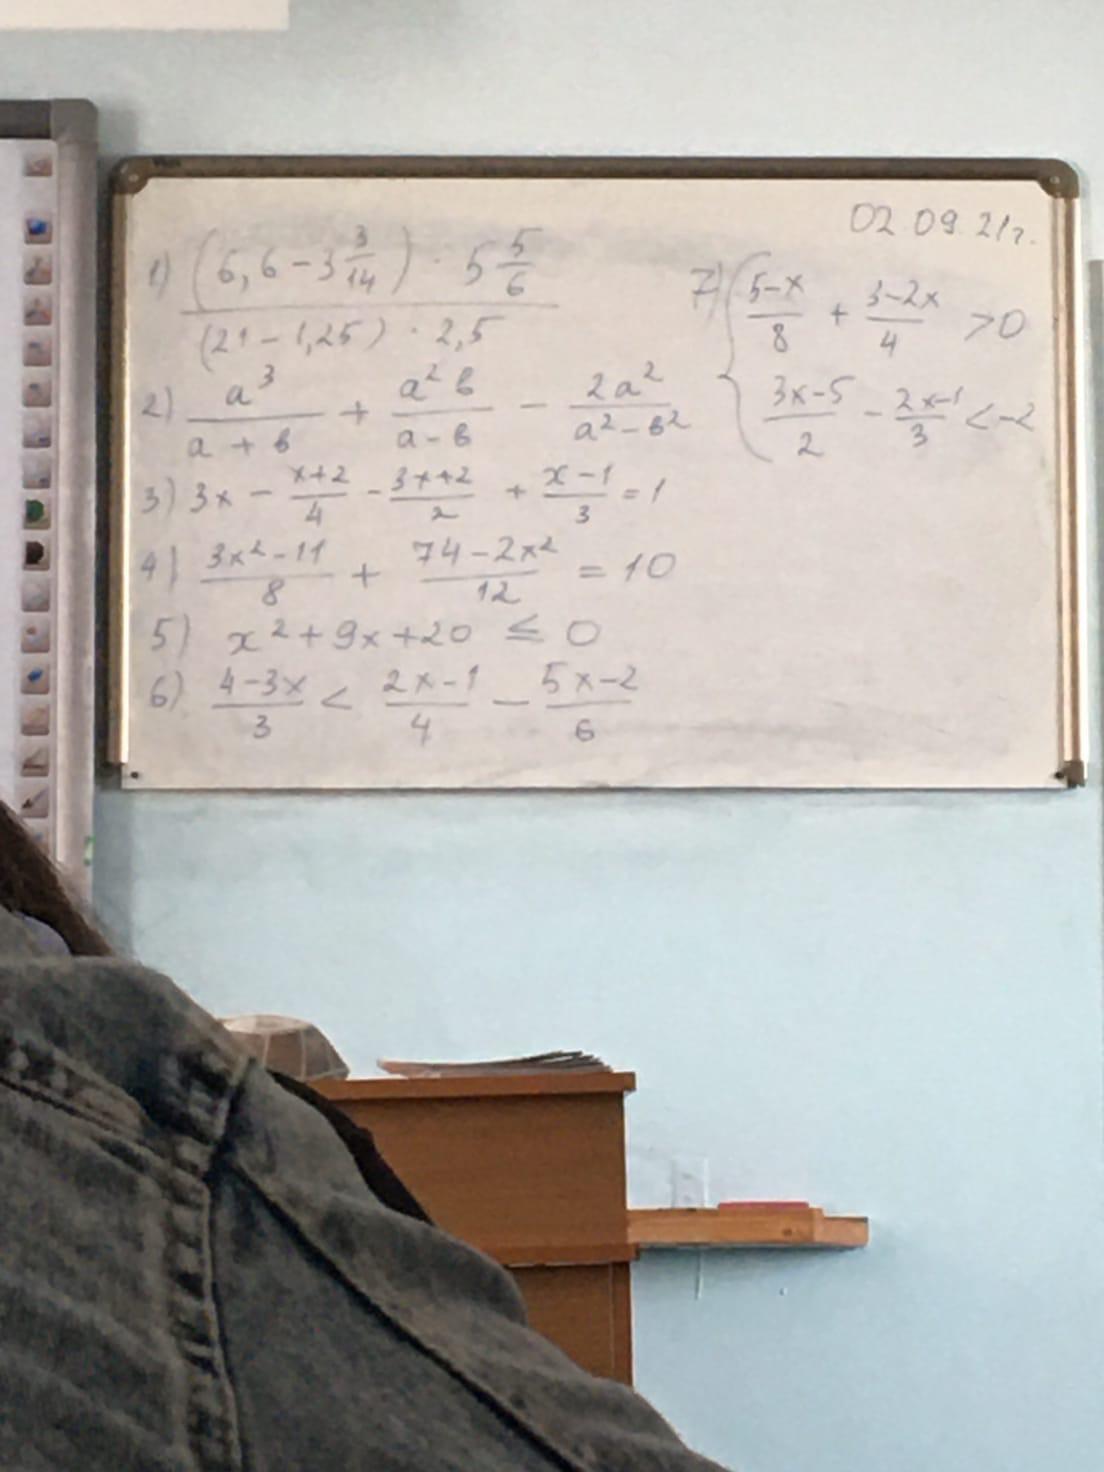 02.09.21г.
1) ((6,6 - 3 3/14) · 5 5/6) / ((21 - 1,25) · 2,5)
2) a³/(a + b) + a²b/(a - b) - 2a²/(a² - b²)
3) 3x - (x+2)/4 - (3x+2)/2 + (x-1)/3 = 1
4) (3x² - 11)/8 + (74 - 2x²)/12 = 10
5) x² + 9x + 20 ≤ 0
6) (4-3x)/3 < (2x-1)/4 - (5x-2)/6
7) { (5-x)/8 + (3-2x)/4 > 0
(3x-5)/2 - (2x-1)/3 < -2